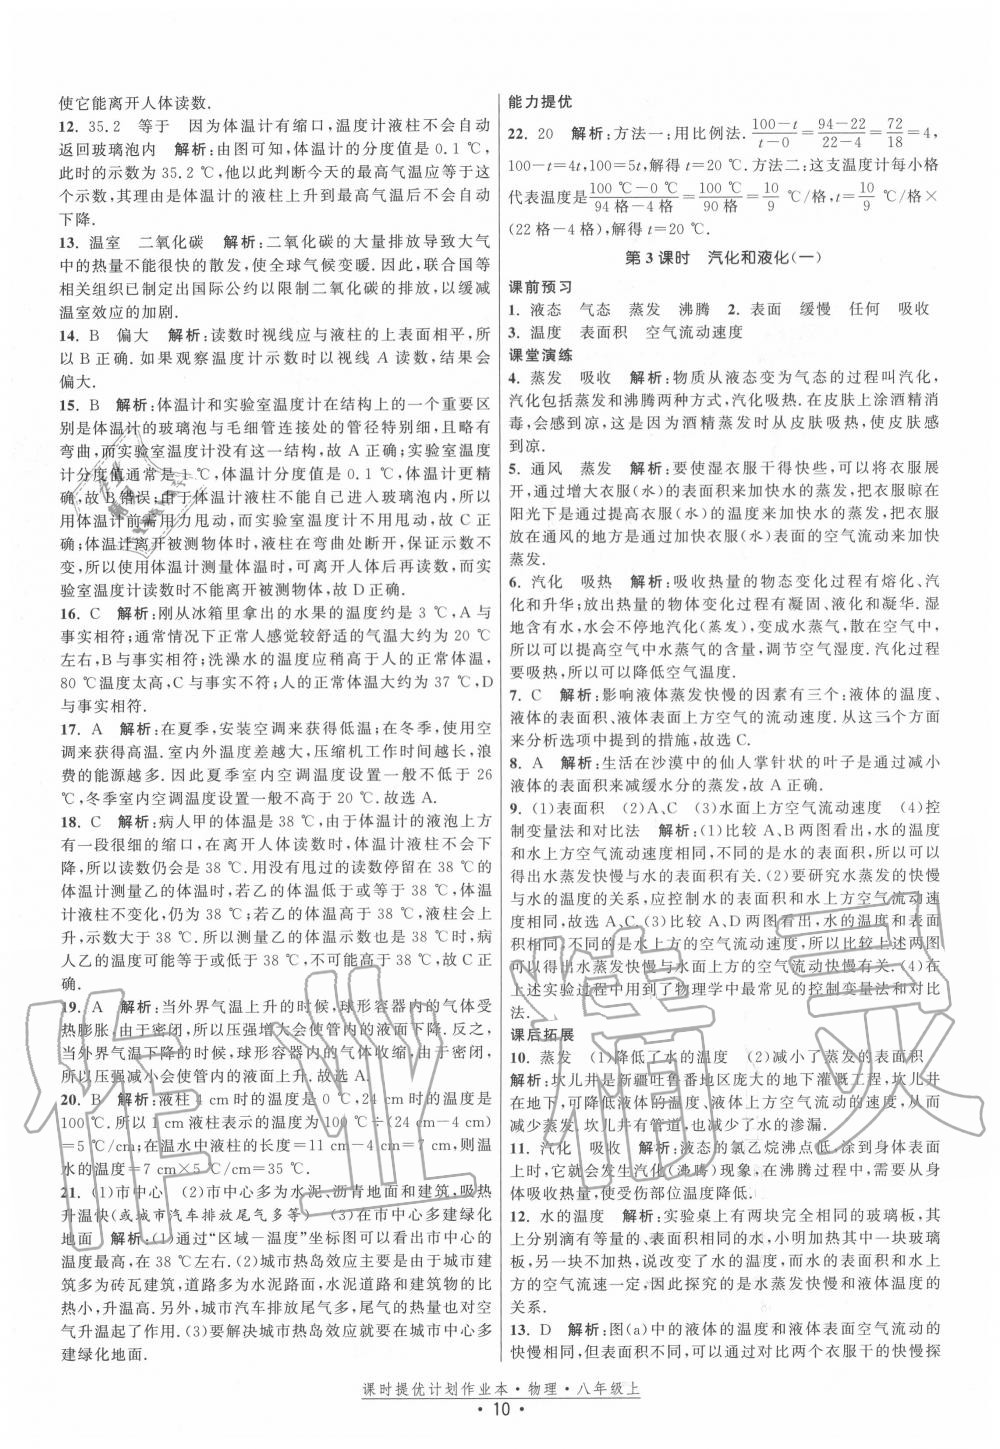 使它能离开人体读数.
12. 35.2　等于　因为体温计有缩口,温度计液柱不会自动
返回玻璃泡内　解析:由图可知,体温计的分度值是 0.1 ℃,
此时的示数为 35.2 ℃,他以此判断今天的最高气温应等于这
个示数,其理由是体温计的液柱上升到最高气温后不会自动
下降.
13. 温室　二氧化碳　解析:二氧化碳的大量排放导致大气
中的热量不能很快的散发,使全球气候变暖.因此,联合国等
相关组织已制定出国际公约以限制二氧化碳的排放,以缓减
温室效应的加剧.
14. B　偏大　解析:读数时视线应与液柱的上表面相平,所
以 B 正确.如果观察温度计示数时以视线 A 读数,结果会
偏大.
15. B　解析:体温计和实验室温度计在结构上的一个重要区
别是体温计的玻璃泡与毛细管连接处的管径特别细,且略有
弯曲,而实验室温度计没有这一结构,故 A 正确;实验室温度
计分度值通常是 1 ℃,体温计分度值是 0.1 ℃,体温计更精
确,故 B 错误;由于体温计液柱不能自己进入玻璃泡内,所以
用体温计前需用力甩动,而实验室温度计不用甩动,故 C 正
确;体温计离开被测物体时,液柱在弯曲处断开,保证示数不
变,所以用体温计测量体温时,可离开人体后再读数,而实
验室温度计读数时不能离开被测物体,故 D 正确.
16. C　解析:刚从冰箱里拿出的水果的温度约是 3 ℃,A 与
事实相符;通常情况下正常人感觉较舒适的气温大约为 20 ℃
左右,B 与事实相符;洗澡水的温度应稍高于人的正常体温,
80 ℃温度太高,C 与事实不符;人的正常体温大约为 37 ℃,D
与事实相符.
17. A　解析:在夏季,安装空调来获得低温;在冬季,使用空
调来获得高温.室内外温度差越大,压缩机工作时间越长,浪
费的能源越多.因此夏季室内空调温度设置一般不低于 26
℃,冬季室内空调温度设置一般不高于 20 ℃.故选 A.
18. C　解析:病人甲的体温是 38 ℃,由于体温计的液泡上方
有一段很细的缩口,在离开人体时细管内的水银不会自动下
降,所以读数仍会是 38 ℃.用没有甩过的读数停留在 38 ℃
的体温计测量乙的体温时,若乙的体温低于或等于 38 ℃,体
温计液柱不变化,仍为 38 ℃;若乙的体温高于 38 ℃,液柱会上
升,示数大于 38 ℃.所以测量乙的体温示数也是 38 ℃时,病
人乙的温度可能等于或低于 38 ℃,不可能高于 38 ℃,故 C
正确.
19. A　解析:当外界气温上升的时候,球形容器内的气体受
热膨胀.由于密闭,所以压强增大会使管内的液面下降.反之,
当外界气温下降的时候,球形容器内的气体收缩,由于密闭,
所以压强减小会使管内的液面上升.故选 A.
20. B　解析:液柱 4 cm 时的温度是 0 ℃,24 cm 时的温度是
100 ℃,所以 1 cm 液柱表示的温度为 100 ℃÷(24 cm－4 cm)
=5 ℃/cm;在温水中液柱的长度=11 cm－4 cm=7 cm,则温
水的温度=7 cm×5 ℃/cm=35 ℃.
21. (1)市中心　(2)市中心多为水泥、沥青地面和建筑,吸热
升温快(或城市汽车排放尾气多等)　(3)在市中心多建绿化
地面　解析:(1)通过“区域－温度”坐标图可以看出市中心的
温度最高.(2)城市热岛效应主要是由于城市建
筑多为砖瓦建筑,道路多为水泥路面,水泥道路和建筑物的比
热小,升温高.另外,城市汽车排放尾气多,尾气的热量也对空
气升温起了作用.(3)要解决城市热岛效应就要在城市中心多
建绿化地面.
能力提优
22. 20　解析:方法一:用比例法.(100－t)/(t－0)=(94－22)/(22－4)=72/18=4,
100－t=4t,100=5t,解得 t=20 ℃.方法二:这支温度计每小格
代表温度是(100 ℃－0 ℃)/(94 格－4 格)=100 ℃/90 格=10/9 ℃/格,t=10/9 ℃/格×
(22 格－4 格),解得 t=20 ℃.
第 3 课时　汽化和液化(一)
课前预习
1. 液态　气态　蒸发　沸腾　2. 表面　缓慢　任何　吸收
3. 温度　表面积　空气流动速度
课堂演练
4. 蒸发　吸收　解析:物质从液态变为气态的过程叫汽化,
汽化包括蒸发和沸腾两种方式,汽化吸热.在皮肤上涂酒精消
毒时,会感到凉.这是因为酒精蒸发时从皮肤吸热,所以会感
到凉.
5. 通风　蒸发　解析:要使湿衣服干得快些,可以将衣服展
开,通过增大衣服(水)的表面积来加快水的蒸发,把衣服晾在
阳光下是通过提高衣服(水)的温度来加快水的蒸发,把衣服
放在通风的地方也可以加快衣服(水)表面的空气流动来加快
蒸发.
6. 汽化　吸热　解析:吸收热量的物态变化过程有熔化、汽
化和升华;放出热量的物体变化过程有凝固、液化和凝华.湿
地含有水,水会不停地汽化(蒸发),变成水蒸气,散在空气中,
所以可以提高空气中水蒸气的含量,调节空气湿度.汽化过程
要吸热,所以可以降低空气温度.
7. C　解析:影响液体蒸发快慢的因素有三个:液体的温度、
液体的表面积、液体表面上方空气的流动速度.从这三个方面
来分析选项中提到的措施,故选 C.
8. A　解析:生活在沙漠中的仙人掌针状的叶子是通过减小
液体的表面积来减缓水分的蒸发,故 A 正确.
9. (1)表面积　(2)A、C　(3)水面上方空气流动速度　(4)控
制变量法和对比法　解析:(1)比较 A、B 两图看出,水的温度
和水上方空气流动速度相同,不同的是水的表面积,所以可以
得出水蒸发快慢与水的表面积有关.(2)要研究水蒸发的快慢
与水的温度的关系,应控制水的表面积和水上方空气流动速
度相同,故选 A、C.(3)比较 A、D 两图看出,水的温度和表面
积相同,不同的是水上方的空气流动速度,所以比较上述两图
可以得出水蒸发快慢与水面上方的空气流动快慢有关.(4)在
上述实验过程中用到了物理学中最常见的控制变量法和对比
法.
课后拓展
10. 蒸发　(1)降低了水的温度　(2)减小了蒸发的表面积
解析:坎儿井是新疆吐鲁番地区庞大的地下灌溉工程,坎儿井
在地下,温度低,通过降低水的温度、液体表面积的大小,从而
减少蒸发.坎儿井有管道,也减少了水的渗漏.
11. 汽化　吸收　解析:液态的氯乙烷沸点低,涂到身体表面
上时,它就会发生汽化(沸腾)现象,在沸腾过程中,需要从人体
吸收热量,使受伤部位温度降低.
12. 水的温度　解析:实验桌上有两块完全相同的玻璃板,其
上各有一滴质量、表面积相同的水,小明加热其中一块玻璃
板,另一个不加热,说明改变了水的温度,而水的表面积和上
方的空气流速一定,因此探究的是水蒸发快慢和液体温度的
关系.
13. D　解析:图(a)中的液体的温度和液体表面空气流动的
快慢相同,但表面积不同,与比较两个衣服干的快慢探
课时提优计划作业本·物理·八年级上
· 10 ·
作业精灵